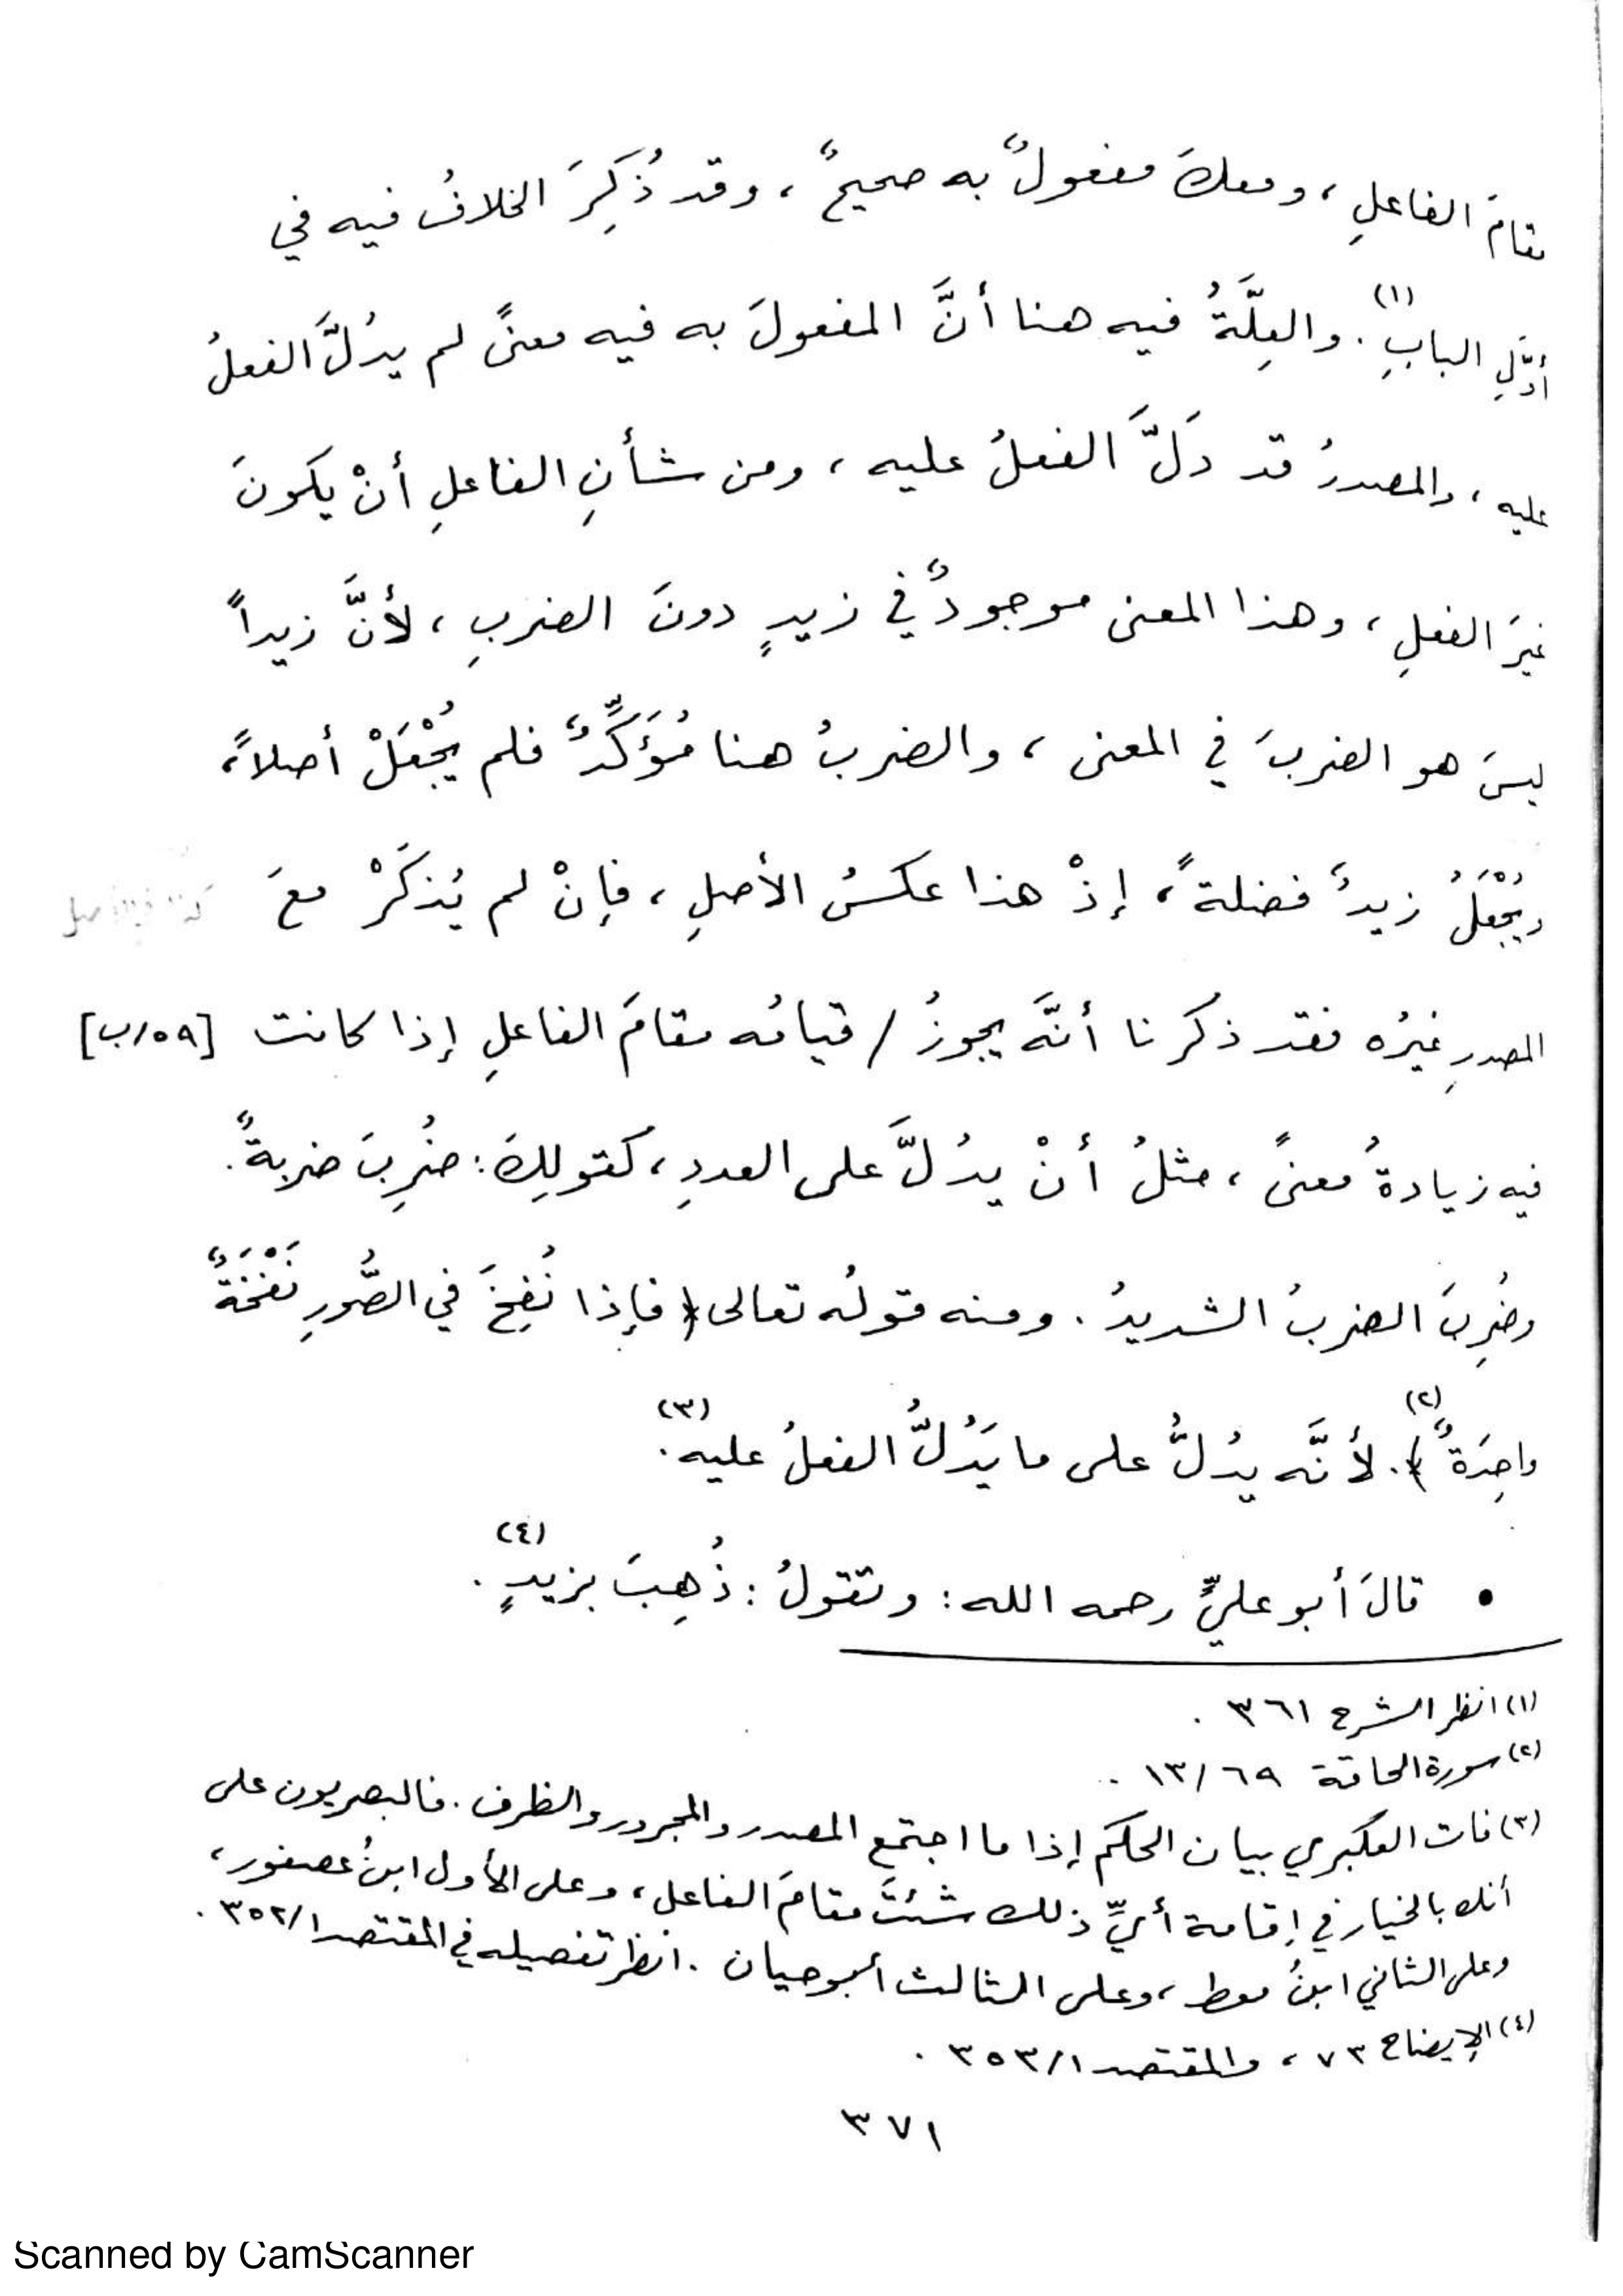 مقامَ الفاعلِ ، ومعكَ مفعولٌ به صحيحٌ ، وقد ذُكِرَ الخلافُ فيه في
أوَّلِ البابِ(١) . والعِلَّةُ فيه هنا أنَّ المفعولَ به فيه معنىً لم يدُلَّ الفعلُ
عليه ، والمصدرُ قد دَلَّ الفعلُ عليه ، ومن شأنِ الفاعلِ أنْ يكونَ
غيرَ الفعلِ ، وهذا المعنى موجودٌ في زيدٍ دونَ الضربِ ، لأنَّ زيداً
ليسَ هو الضربَ في المعنى ، والضربُ هنا مُؤَكِّدٌ فلم يُجْعَلْ أصلاً ،
ويُجْعَلُ زيدٌ فضلةً ، إذْ هذا عكسُ الأصلِ ، فإنْ لم يُذكَرْ معَ
المصدرِ غيرُه فقد ذكرنا أنَّه يجوزُ / قيامُه مقامَ الفاعلِ إذا كانت [٥٩/ب]
فيه زيادةُ معنىً ، مثلُ أنْ يدُلَّ على العددِ ، كقولِكَ : ضُرِبَ ضربةٌ .
وضُرِبَ الضربُ الشديدُ . ومنه قولُه تعالى ﴿ فإذا نُفِخَ في الصُّورِ نَفْخَةٌ
واحِدَةٌ ﴾(٢) . لأنَّه يدُلُّ على ما يَدُلُّ الفعلُ عليه(٣) .
• قالَ أبو عليٍّ رحمه الله : وتقولُ : ذُهِبَ بزيدٍ(٤) .
(١) انظر الشرح ٣٦١ .
(٢) سورة الحاقة ٦٩/١٣ .
(٣) فات العكبري بيان الحكم إذا ما اجتمع المصدر والمجرور والظرف . فالبصريون على
أنك بالخيار في إقامة أيِّ ذلك شئتَ مقامَ الفاعل ، وعلى الأول ابنُ عصفور ،
وعلى الثاني ابنُ معط ، وعلى الثالث أبو حيان . انظر تفصيله في المقتصد ٣٥٢/١ .
(٤) الإيضاح ٧٣ ، والمقتصد ٣٥٣/١ .
٣٧١
Scanned by CamScanner